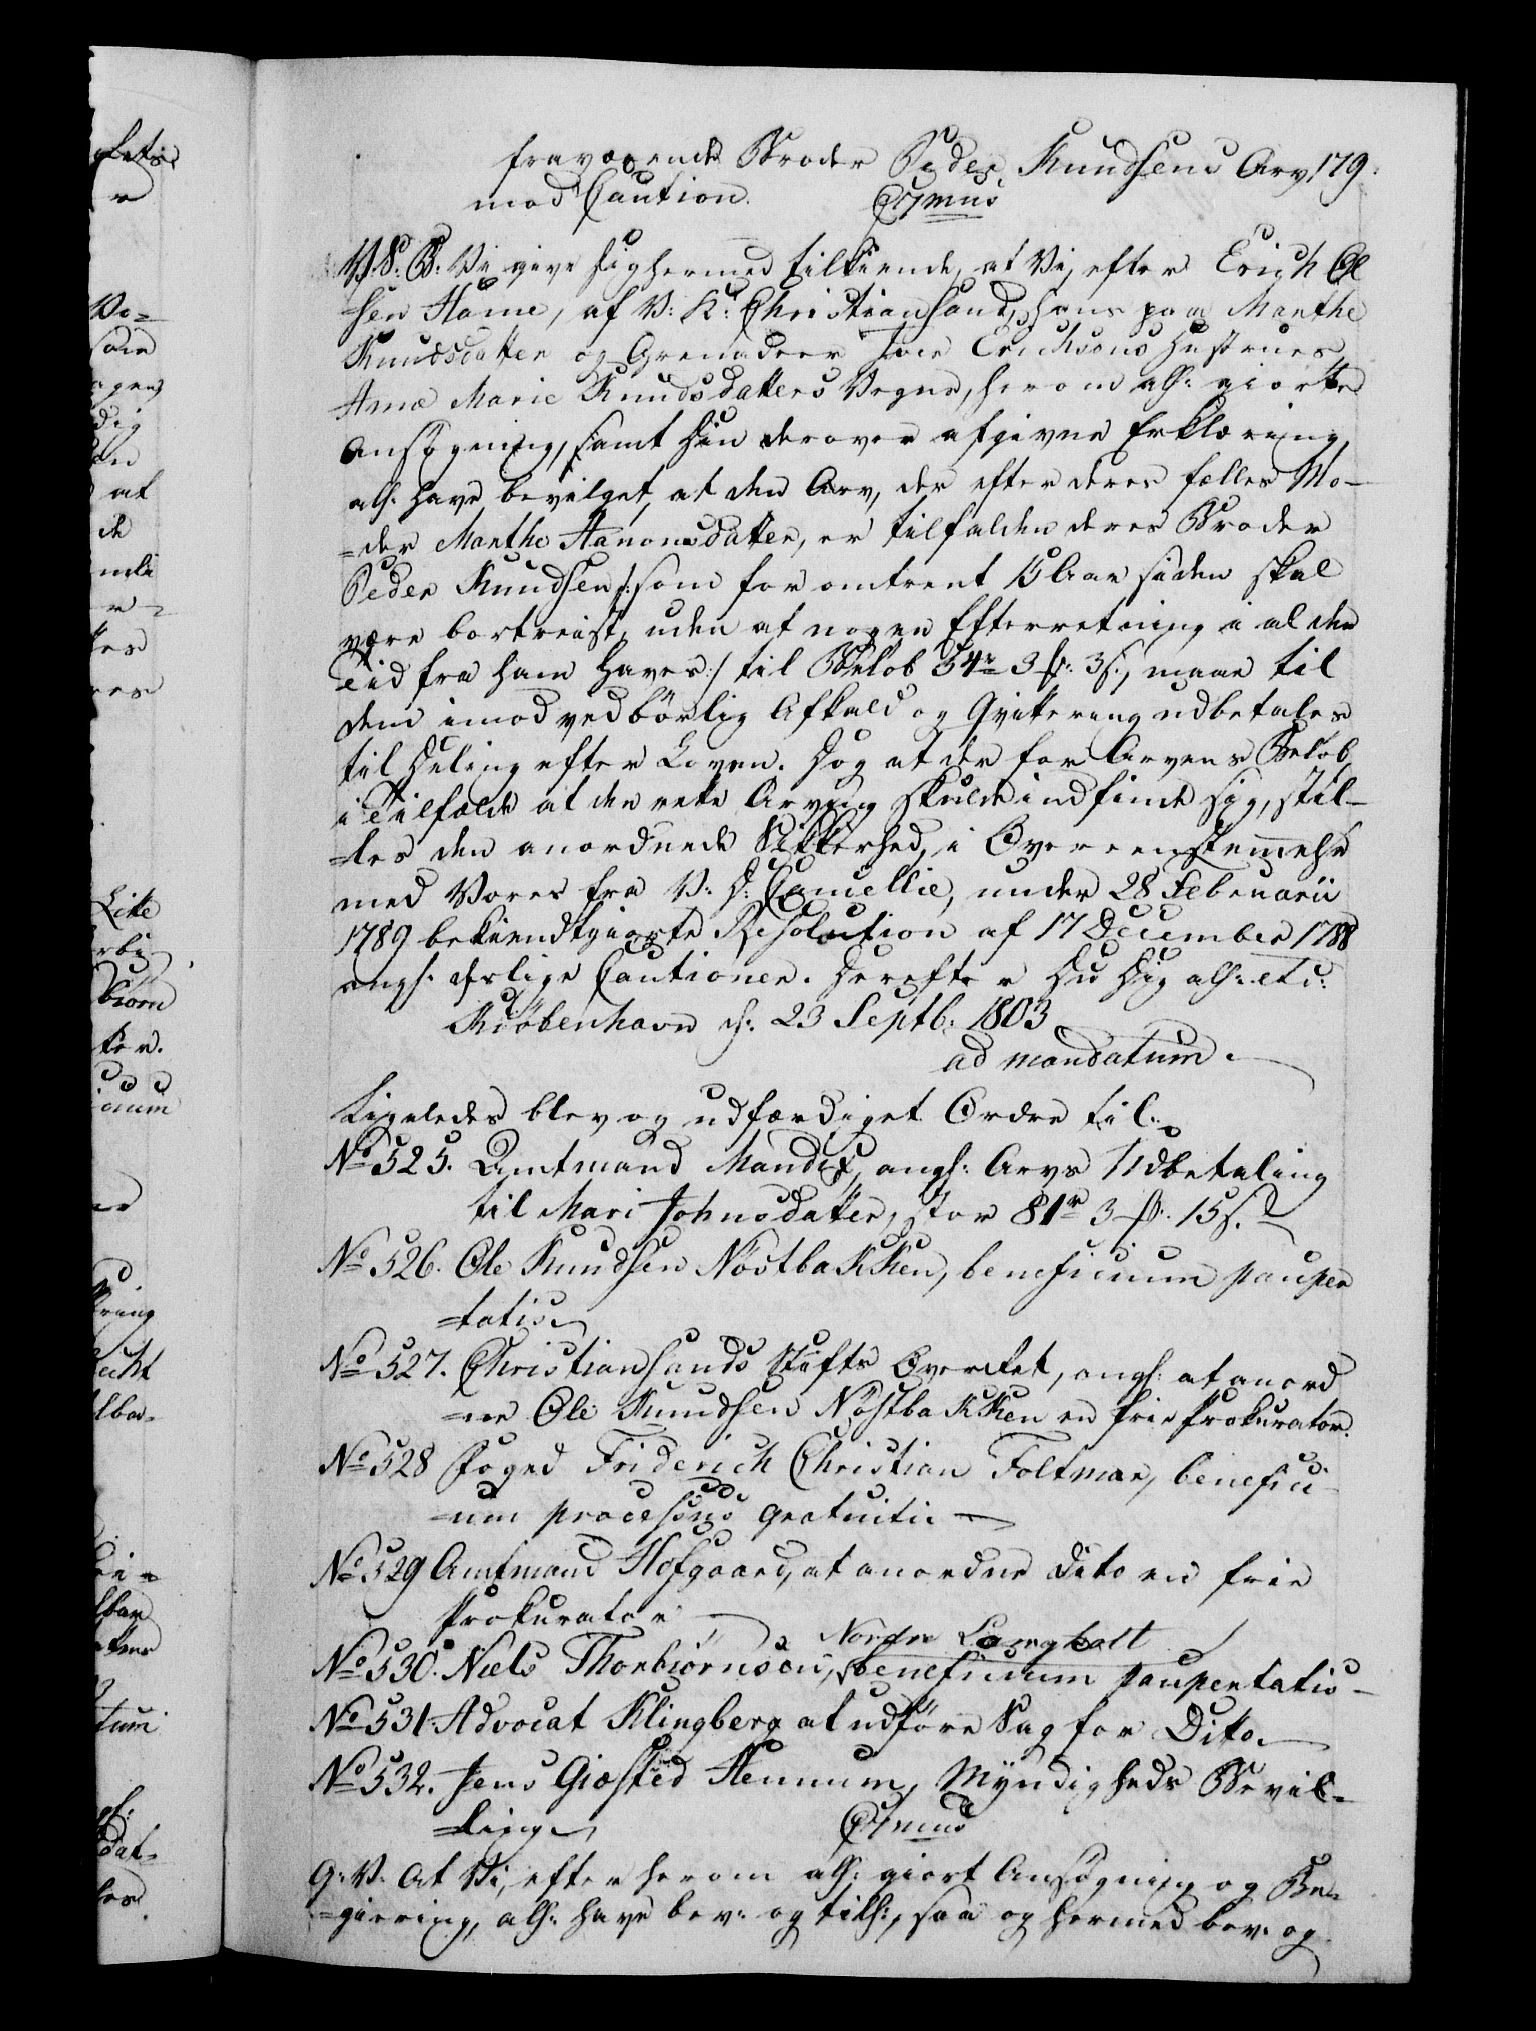 fraværende Broder Peder Knudsens Arv 179.
mod Caution. C7mus
V. S. B: Vi give Dig hermed tilkiende, at Vi, efter Erich Ol
-sen Hame, af V: K: Christiansand, hans paa Marthe
Knudsdatter og Grenadeer Tore Ericksons Hustrues
Anne Marie Knudsdatters Vegne, herom alh: giorte
Ansøgning, samt Din derover afgivne Erklæring,
alh: have bevilget, at den Arv, der efter deres fælles Mo-
=der Marthe Aanonsdatter, er tilfalden deres Broder
Peder Knudsen /: som for omtrent Aar siden skal
være bortreist, uden at nogen Efterretning i al den
Tid fra ham haves :/ til Beløb 54r 3 ß: 3 s., maae til
dem imod vedbörlig Afkald og Qvittering udbetales
til Deling efter Loven. Dog at der for Arvens Beløb,
i Tilfælde at den rette Arving skulde indfinde sig, stil-
=les den anordnede Sikkerhed, i Overeensstemmelse
med Vores fra V: D: Cancellie, under 28 Februarii
1789 bekiendtgiorte Resolution af 17 December 1788
angl. deslige Cautioner. Derefter Du Dig alh: etc:
Kiöbenhavn d: 23 Septb: 1803
ad mandatum.
Ligeledes blev og udfærdiget Ordre til:
No 525. Amtmand Mandix, angl: Arvs Udbetaling
til Mari Johnsdatter, stor 81r 3 ß: 15 s.
No 526. Ole Knudsen Nöstbakken, beneficium pauper
=tatis
No 527. Christiansands Stifts Overret, angl: at anord
=ne Ole Knudsen Nöstbakken en frie Prokurator.
No 528 Foged Friderich Christian Foltmar, benefici
=um processus gratuiti
No 529 Amtmand Hofgaard, at anordne Dito en frie
Prokurator
Nordre Langholt
No 530. Niels Thorbiörnsön, beneficium paupertatis
No 531. Advocat Klingberg at udføre Sag for Dito.
No 532. Jens Giæsted Hennum, Mÿndigheds Bevil-
=ling C7mus
G: V: At Vi, efter herom alh: giort Ansøgning og Be-
=giering, alh: have bev: og tillh:, saa og hermed bev: og